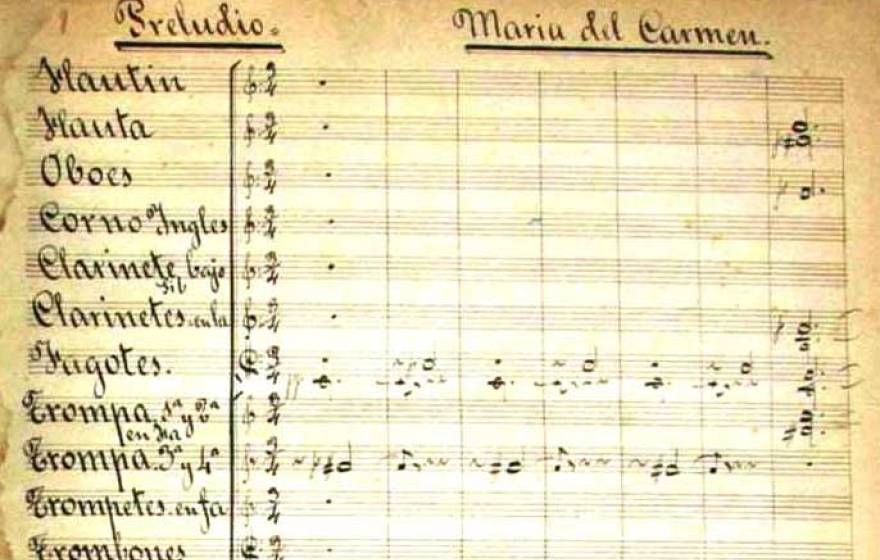 Preludio. Maria del Carmen.
Flautin
Flauta
Oboes
Corno Ingles
Clarinete bajo
Clarinetes en la
Fagotes.
Trompa 1ª y 2ª
en Fa
Trompa 3ª y 4ª
Trompetes en fa
Trombones